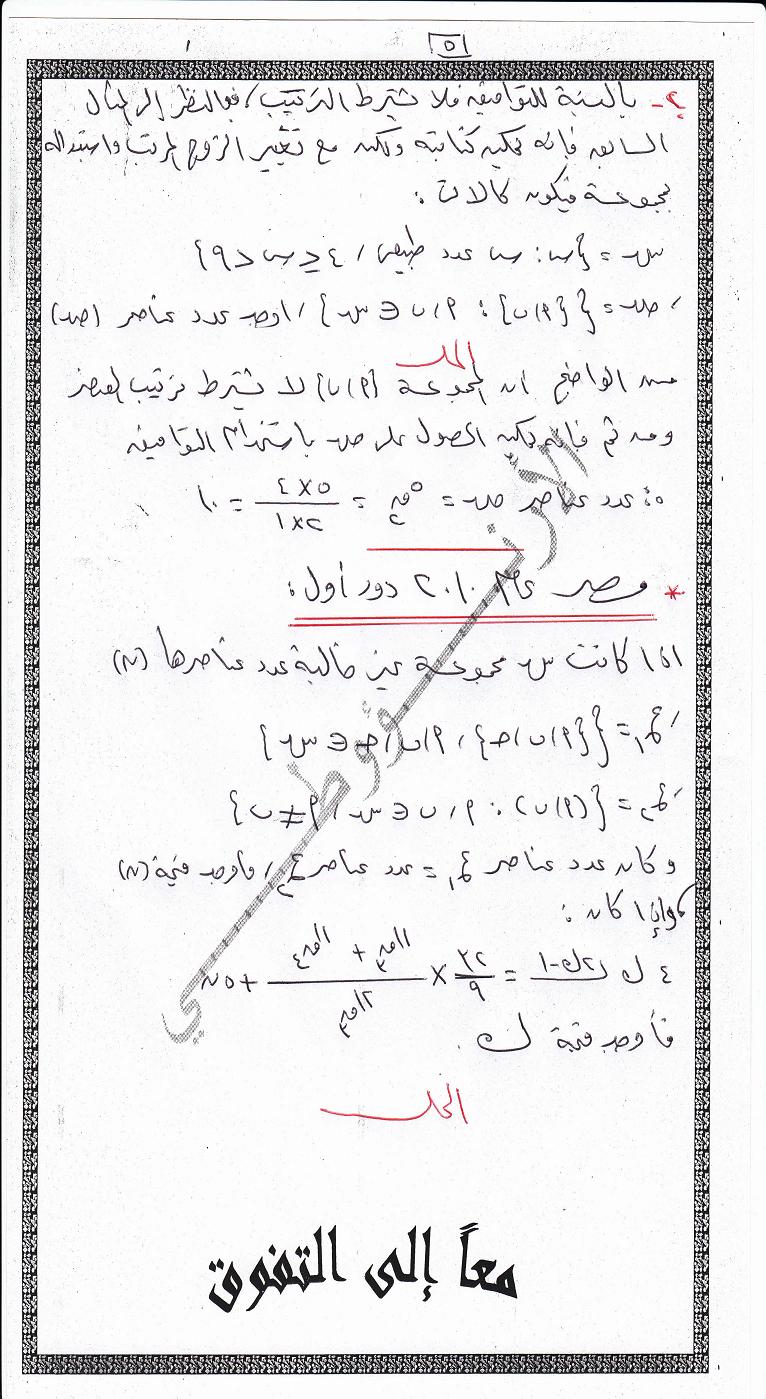 ٥١
٢- بالنسبة للتوافيق فلا يشترط الترتيب / فبالنظر إلى المثال
السابق فإنه يمكن كتابته ولكن مع تغيير الزوج المرتب واستبداله
بمجموعة فيكون كالآت :
س = {س: س عدد طبيعى / ٤ ≤ س < ٩}
، ص = { {٩،ب} : ٩، ب ∈ س } / اوجد عدد عناصر (ص)
الحل
من الواضح ان المجموعة {٩،ب} لا يشترط ترتيب العناصر
ومن ثم فإنه يمكن الحصول على ص باستخدام التوافيق
∴ عدد عناصر ص = ٥ق٢ = ٥×٤ / ٢×١ = ١٠
* مصر عام ٢٠١٠ دور أول :
اذا كانت س مجموعة غير خالية عدد عناصرها (ن)
، ع١ = { {٩،ب،ح} ، ٩،ب،ح ∈ س }
، ع٢ = { (٩،ب) : ٩، ب ∈ س ، ٩ ≠ ب }
و كان عدد عناصر ع١ = عدد عناصر ع٢ / فأوجد قيمة (ن)
وإذا كان :
٤ ك |٢ك-١ = ٣٢/٩ × (١١ق٣ + ١١ق٤) / ١٢ق٣ + ٥ن
فأوجد قيمة ك
الحل
معاً إلى التفوق